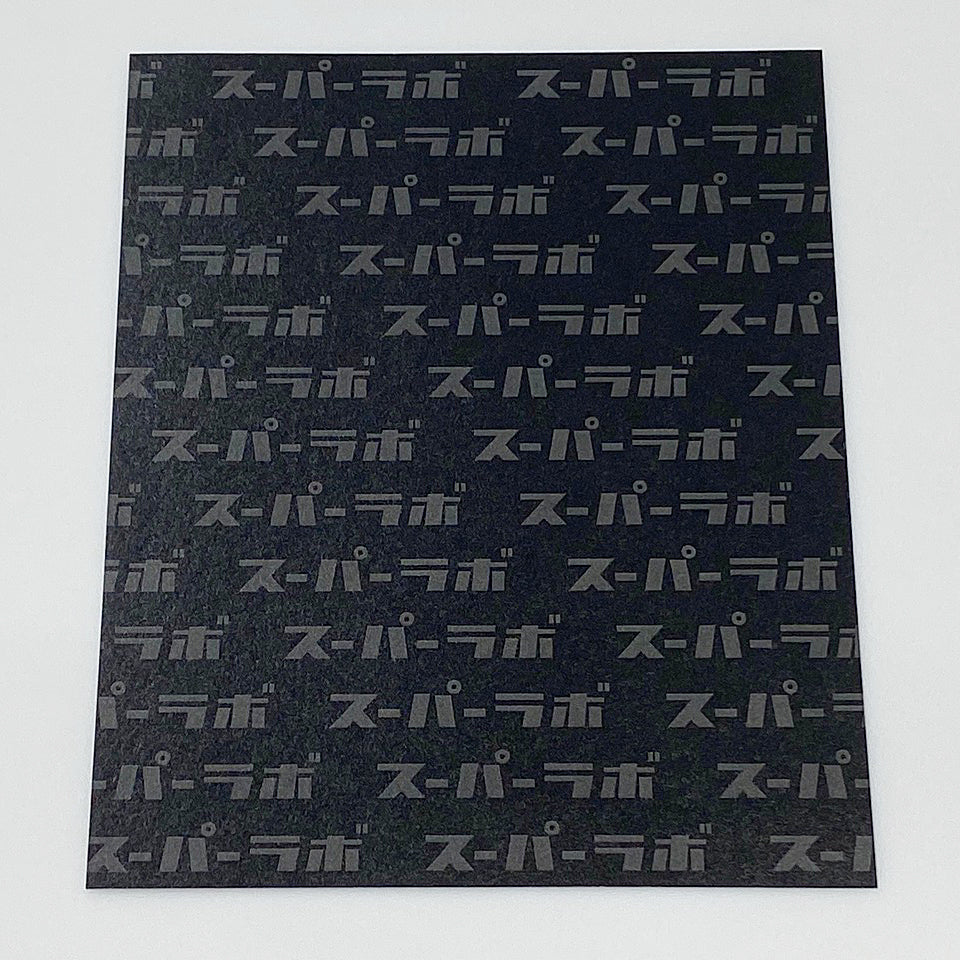 ボ スーパーラボ スーパーラボ
ラボ スーパーラボ スーパーラボ
ーラボ スーパーラボ スーパーラ
パーラボ スーパーラボ スーパーラ
ーパーラボ スーパーラボ スーパー
スーパーラボ スーパーラボ スーパ
スーパーラボ スーパーラボ ス
ボ スーパーラボ スーパーラボ
ラボ スーパーラボ スーパーラボ
ラボ スーパーラボ スーパーラ
パーラボ スーパーラボ スーパーラ
ーパーラボ スーパーラボ スーパー
スーパーラボ スーパーラボ スー